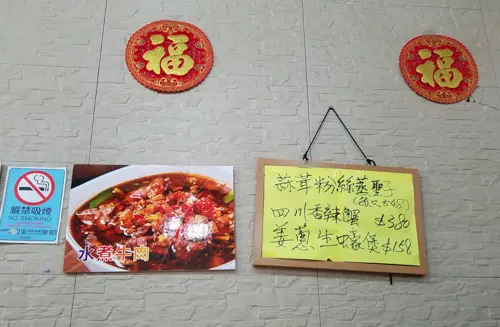 福
福
嚴禁吸煙
NO SMOKING
水煮牛肉
蒜茸粉絲蒸聖子
四川香辣蟹 $380
姜蔥生蠔煲 $158